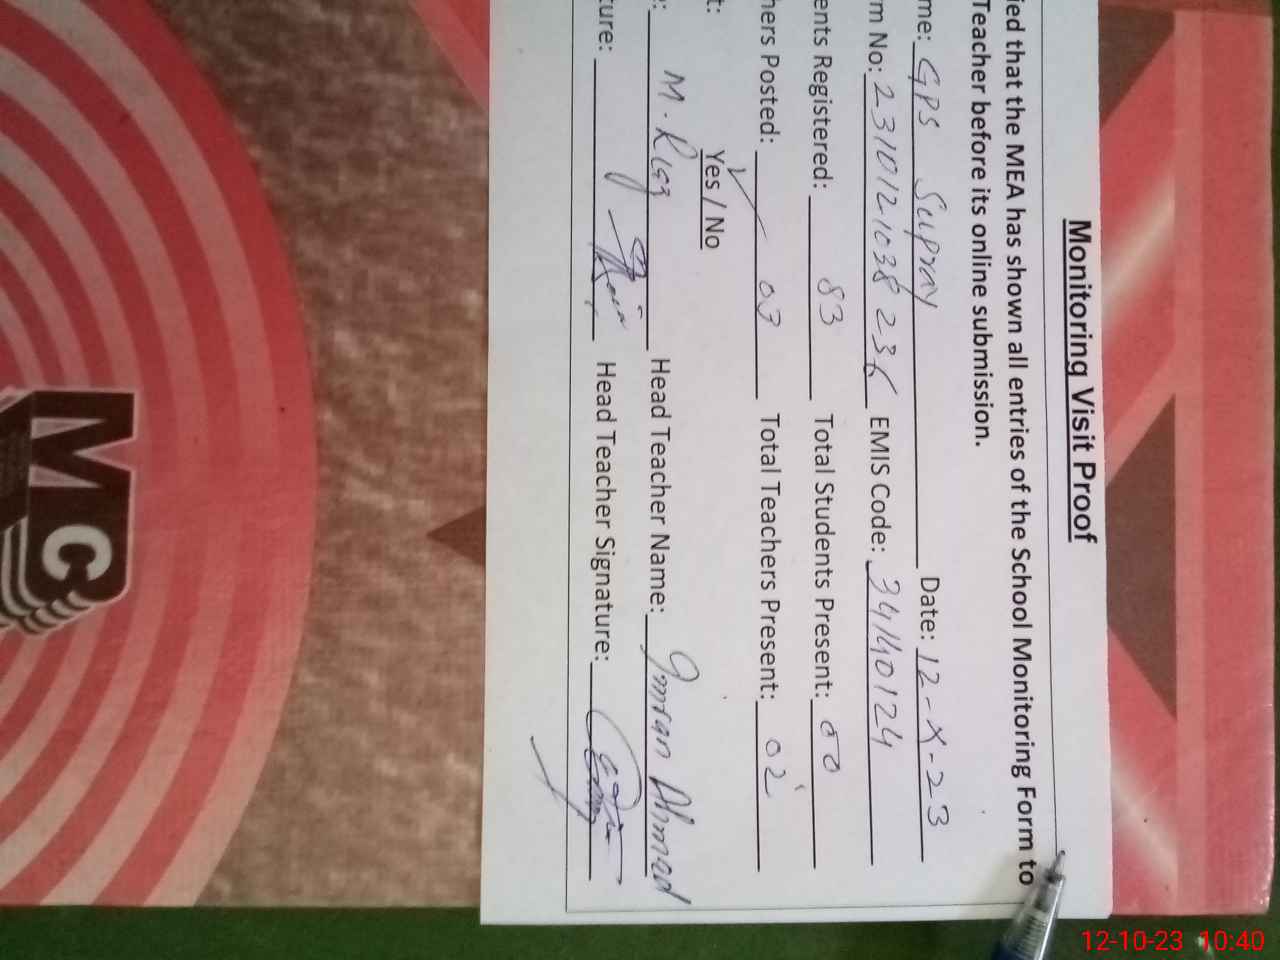 Monitoring Visit Proof
ied that the MEA has shown all entries of the School Monitoring Form to
Teacher before its online submission.
me: GPS Supray Date: 12-X-23
m No: 2310121038236 EMIS Code: 34140124
ents Registered: 83 Total Students Present: 00
hers Posted: 03 Total Teachers Present: 02
t: Yes / No
e: M. Riaz Head Teacher Name: Imran Ahmad
ture: Head Teacher Signature:
MC
12-10-23 10:40